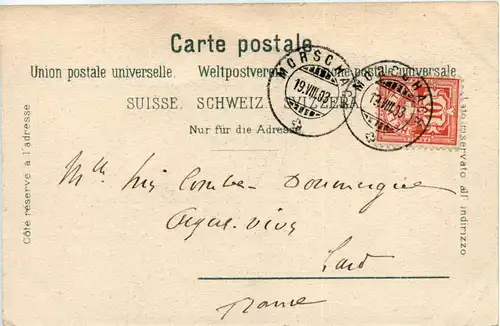 Carte postale.
Union postale universelle. Weltpostverein. postale universale
SUISSE. SCHWEIZ. SVIZZERA.
Nur für die Adresse
Côté réservé à l'adresse
Lato riservato all' indirizzo
MORSCHACH
19.VIII.03
MORSCHACH
19.VIII.03
10
Mlle Combe- Doumergue
Aigues-Vives
Gard
France